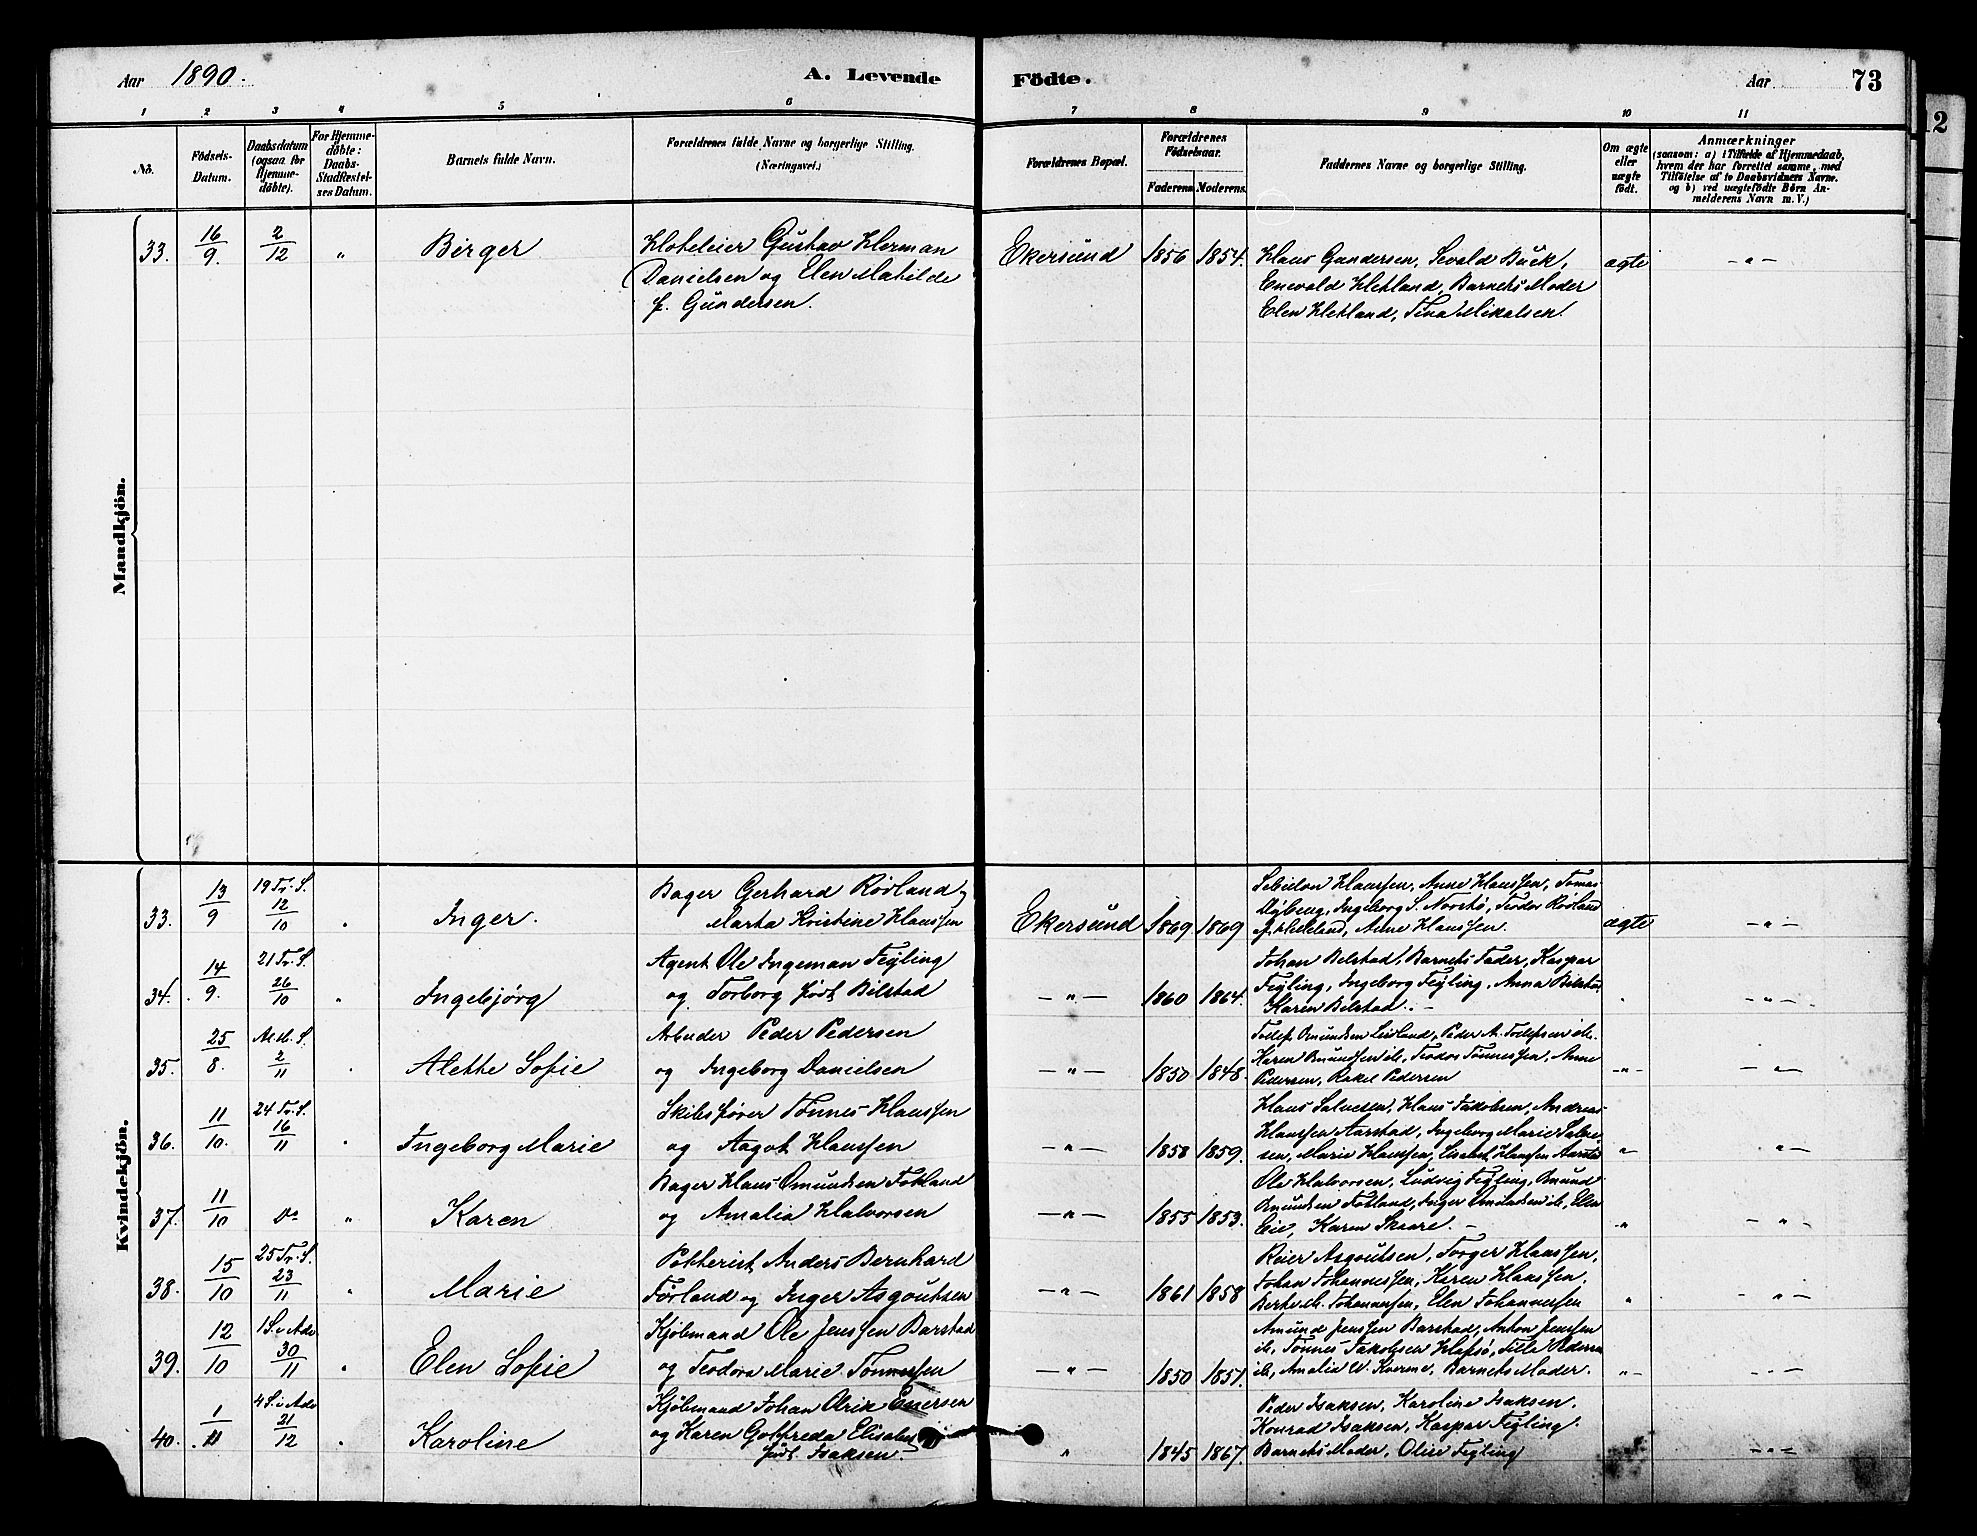 Aar 1890. A. Levende Födte. Aar 73
12
1 2 3 4 5 6 7 8 9 10 11
No.
Födsels-
Datum.
Daabsdatum
(ogsaa for
Hjemme-
døbte).
For Hjemme-
døbte:
Daabs-
Stadfæstel-
ses Datum.
Barnets fulde Navn.
Forældrenes fulde Navne og borgerlige Stilling.
(Næringsvei.)
Forældrenes Bopæl.
Forældrenes
Födselsaar.
Faderens. Moderens.
Faddernes Navne og borgerlige Stilling.
Om ægte
eller
uægte
født.
Anmærkninger
(saasom: a) i Tilfælde af Hjemmedaab,
hvem der har forrettet samme, med
Tilføielse af to Daabsvidners Navne,
og b) ved uægtefødte Børn An-
melderens Navn m. V.)
Mandkjön.
33. 16/9 2/12 " Birger
Hoteleier Gustav Herman
Danielsen og Elen Matilde
f. Gundersen.
Ekersund 1856 1854.
Hans Gundersen, Sevald Buck,
Enevald Hetland, Barnets Moder
Elen Hetland, Tina Mikalsen.
ægte – " –
Kvindekjön.
33. 13/9 19 Tr. S. 12/10 " Inger.
Bager Gerhard Rødland og
Marta Kristine Hanssen
Ekersund 1869 1869
Anne Hanssen, Tomas
Ingeborg S. Teodor Rødland
Anne Hanssen.
ægte – " –
34. 14/9. 21 Tr. S. 26/10 " Ingebjørg
Agent Ole Ingeman Feyling
og Torborg født Bilstad
– " – 1860 1864.
Johan Bilstad, Barnets Fader, Kaspar
Feyling, Ingeborg Feyling, Anna Bilstad,
Karen Bilstad. –
" – " –
35. 25/8. 2/11 " Alette Sofie
Arbeider Peder Pedersen
og Ingeborg Danielsen
– " – 1850 1848.
Omundsen Peder A.
Karen Teodor Tønnessen, Anne
Pedersen, Rakel Pedersen
– " – – " –
36. 11/10. 24 Tr. S. 16/11 " Ingeborg Marie
Skibsfører Tønnes Hanssen
og Aagot Hanssen
– " – 1858 1859.
Hans Salvesen, Hans Jakobsen, Andreas
Hanssen Aarstad, Ingeborg Marie Salve-
sen, Marie Hanssen, Elisabet Hanssen Aarstad
" " –
37. 11/10 Do " Karen
Bager Hans Omundsen Fotland
og Amalia Halvorsen
– " – 1855 1853.
Ole Halvorsen, Ludvig Feyling, Omund
Omundsen Fotland, Inger Omundsen ib., Elen
Eie, Karen Skaare. –
" – " –
38. 15/10 25 Tr. S. 23/11 " Marie
Anders Bernhard
Førland og Inger Asgoutsen
– " – 1861 1858
Reier Asgoutsen, Torger Hanssen,
Johan Johannessen, Karen Hanssen,
Johannessen, Elen Johannessen
" – " –
39. 12/10 1 S. i Adv. 30/11 " Elen Sofie
Kjøbmand Ole Jenssen Barstad
og Teodora Marie Tønnessen
– " – 1850 1857.
Amund Jenssen Barstad, Anton Jenssen
ib., Tønnes Jakobsen Hafsø, Pedersen
ib., Amalia W. Kverme, Barnets Moder.
" – " –
40. 1/11 4 S. i Adv. 21/12 " Karoline
Kjøbmand Johan Olrik Enersen
og Karen Gotfreda Elisabet
født Isaksen.
" 1845 1867.
Peder Isaksen, Karoline Isaksen,
Konrad Isaksen, Kaspar Feyling.
Barnets Moder, Oline Feyling
– " –